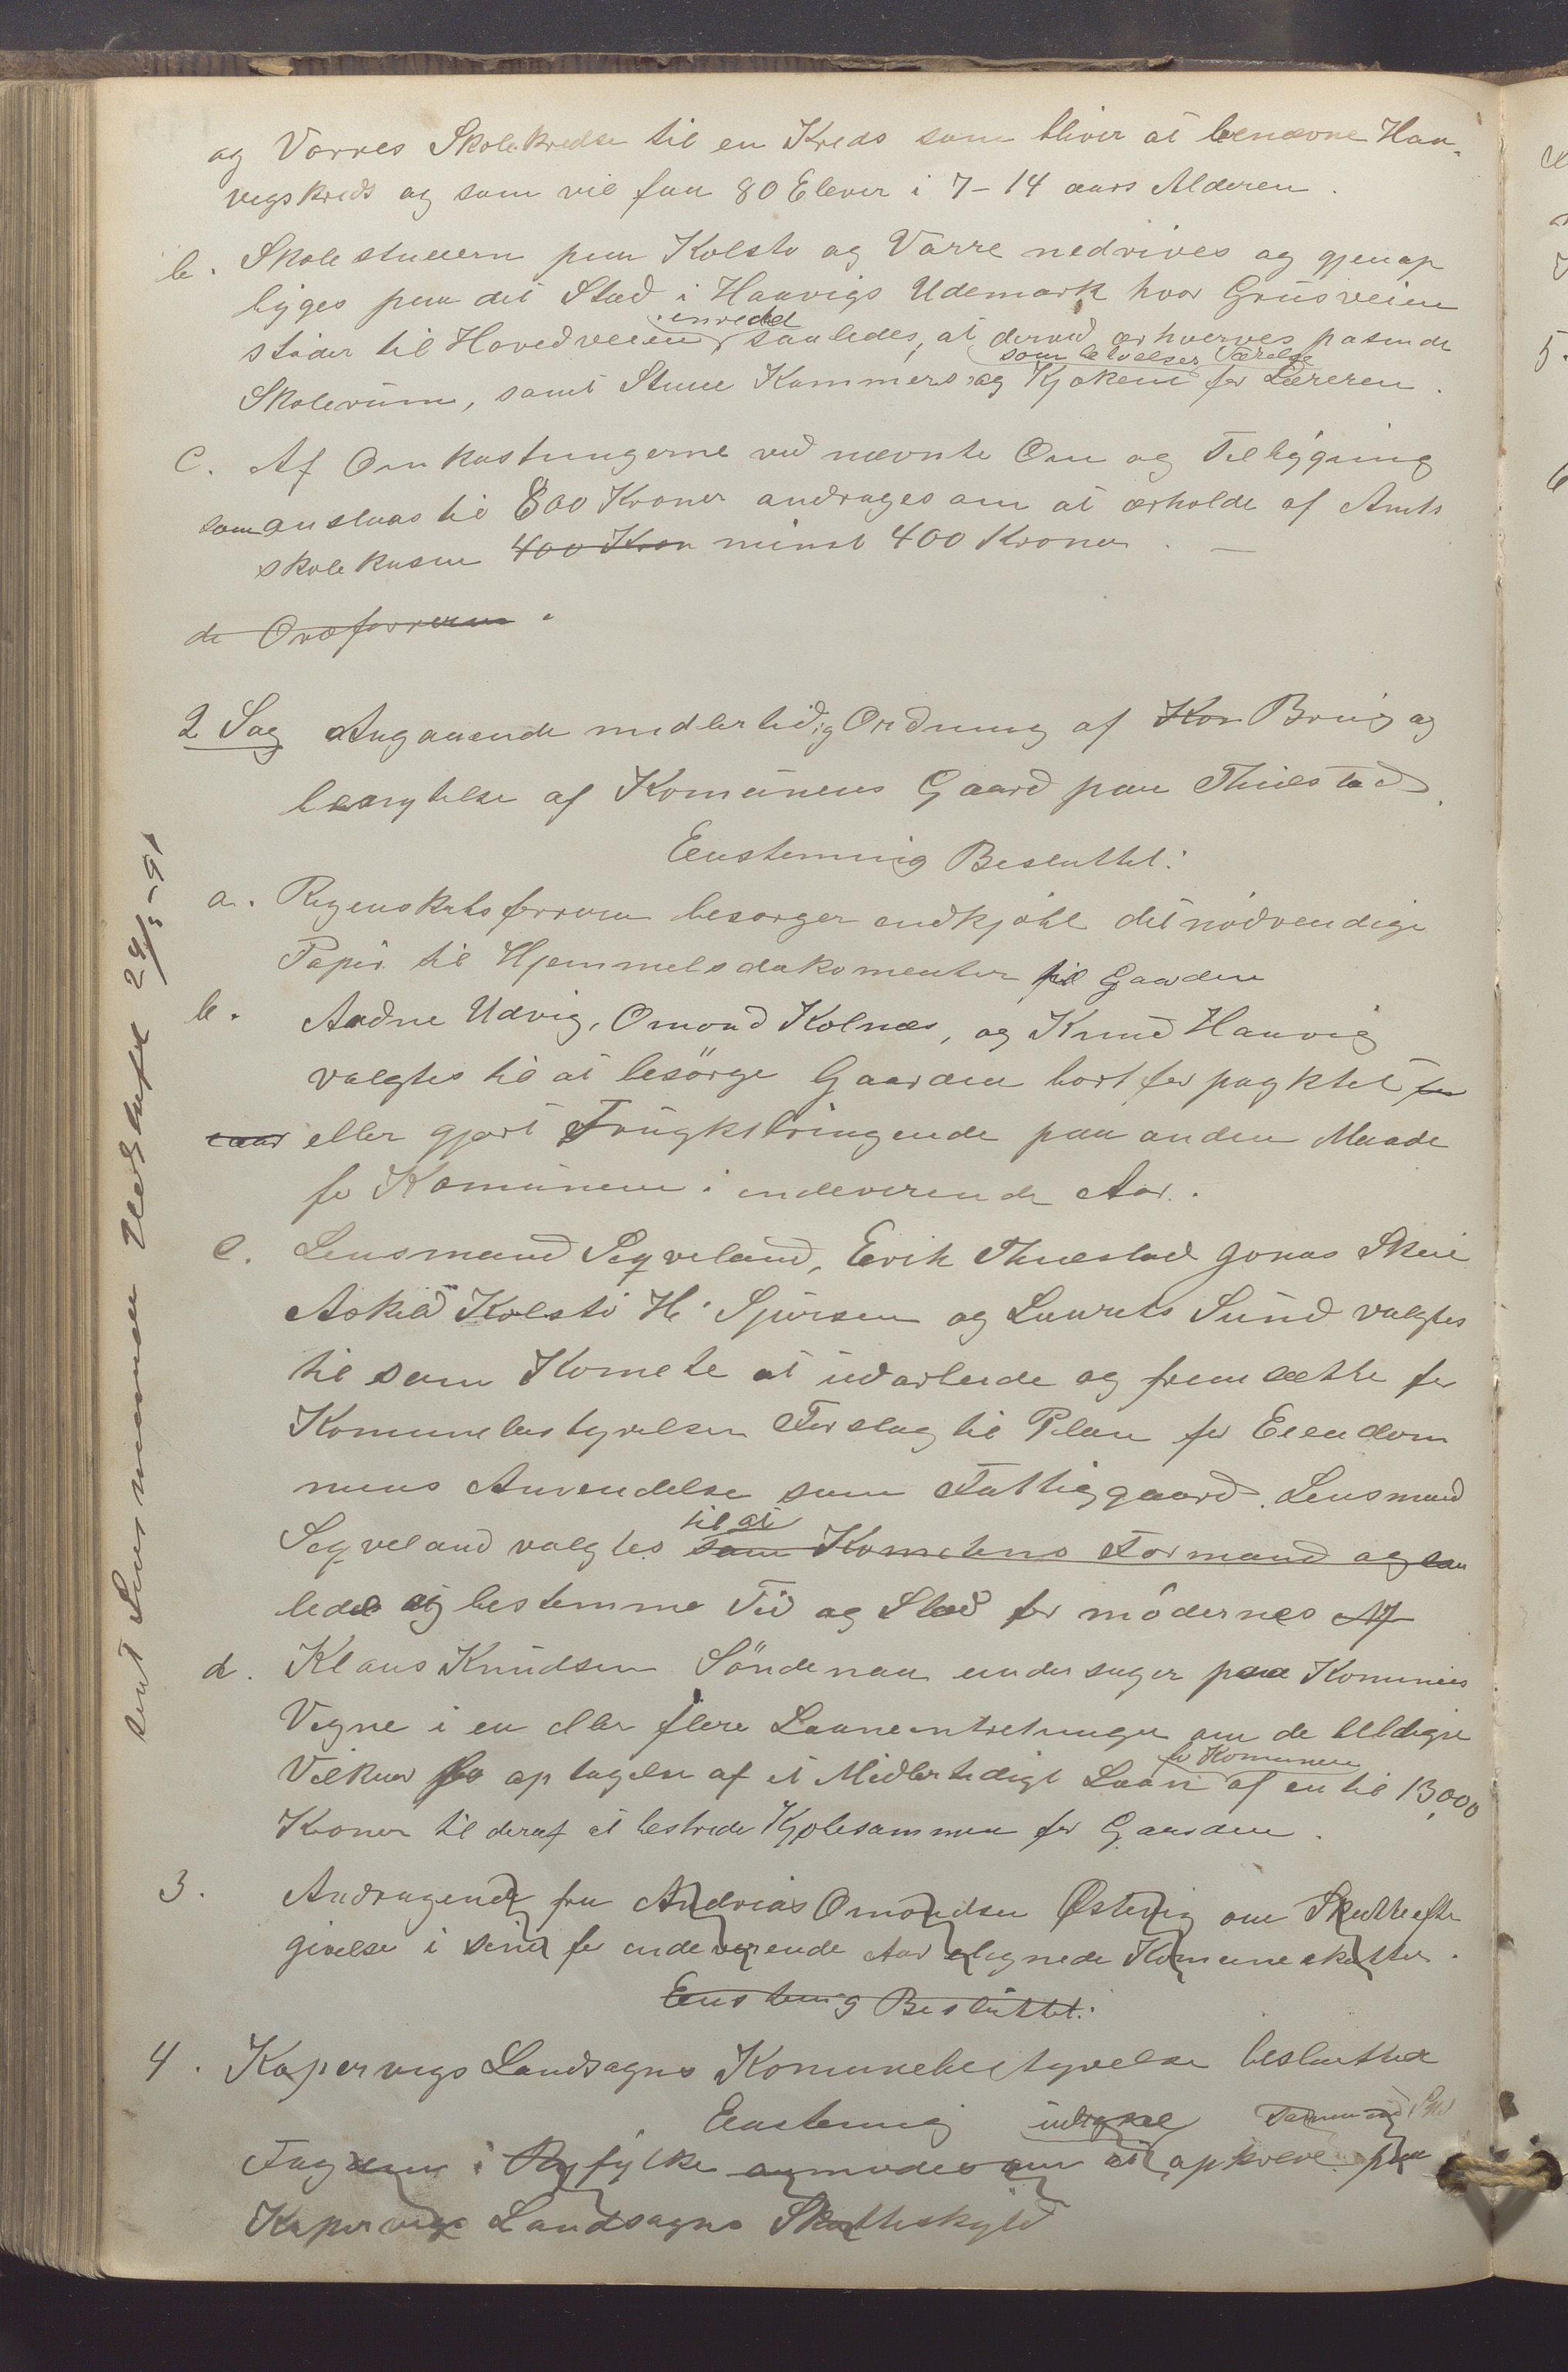 og Vorres Skolekredse til en Kreds som bliver at benævne Haa-
vigskreds og som vil faa 80 Elever i 7-14 aars Alderen.
b. Skolestuerne paa Kolstø og Vorre nedrives og gjenop
bygges paa det Sted i Haavigs Udemark hvor Grusveien
enredet
støder til Hovedveien saaledes, at derved erhverves pasende
som bekvelser Værelse
Skolerum, samt Stue Kammers og Kjøken for Læreren.
C. Af Omkostningerne ved nævnte Om og Tilbygning
som anslaaes til 800 Kroner andrages om at erholde af Amts
skolekasen 400 Kron minst 400 Kroner. —
de Ordføreren.
2 Sag Angaaende midlertidig Ordning af Kon Brug og
benytelse af Komunens Gaard paa Thuestad.
Eenstemmig Besluttet:
a. Regenskabsføreren besørger indkjøbt det nødvendige
Papir til Hjemmelsdokomenter til Gaarden
b. Aadne Udvig, Omond Kolnes, og Knud Haavig
valgtes til at besørge Gaarden bortforpagktet for
iaar eller gjort Frugktbringende paa anden Maade
for Komunen i indeværende Aar.
c. Lensmand Seqveland, Erik Thuestad Jonas Skeie
Askild Kolstø H. Sjursen og Laurits Sund valgtes
til som Komete at udarbeide og fremsætte for
Komunebestyrelsen Forslag til Plan for Eiendom
mens Anvendelse som Fattiggaard. Lensmand
til at
Seqveland valgtes som Kometens Formand og saa
ledes at bestemme Tid og Sted for mødernes Af
d. Klaus Knudsen Søndenaa undersøger paa Komunens
Vegne i en eller flere Laaneindretninger om de billdigse
for Komunen
Vilkaar for optagelse af et Midlertidigt Laan af en til 13,000
Kroner til deraf at bestride Kjøbesummen for Gaarden.
3. Andragende fra Andreas Omondsen Østevig om Skatteefter
givelse i sin for indeværende Aar elignede Komuneskatter.
Eenstemig Besluttet:
4. Kopervigs Landsogns Komunebestyrelse besluttet
Eenstemig
Fogden i Ryfylke anmodes om at opkreve paa
Kopervigs Landsogns Skatteskyld
sent Lensmannen Udskrift 24/5-91